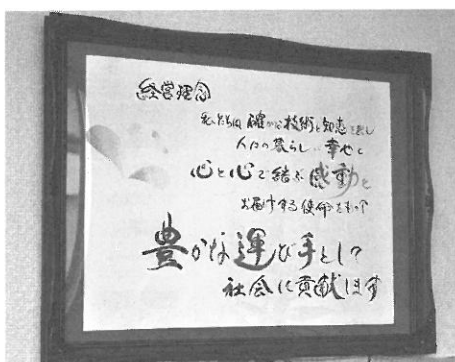 経営理念
私たちは 確かな技術と知恵を
人々の暮らしに幸せと
心と心で結ぶ感動を
お届けする使命をもって
豊かな運び手として
社会に貢献します